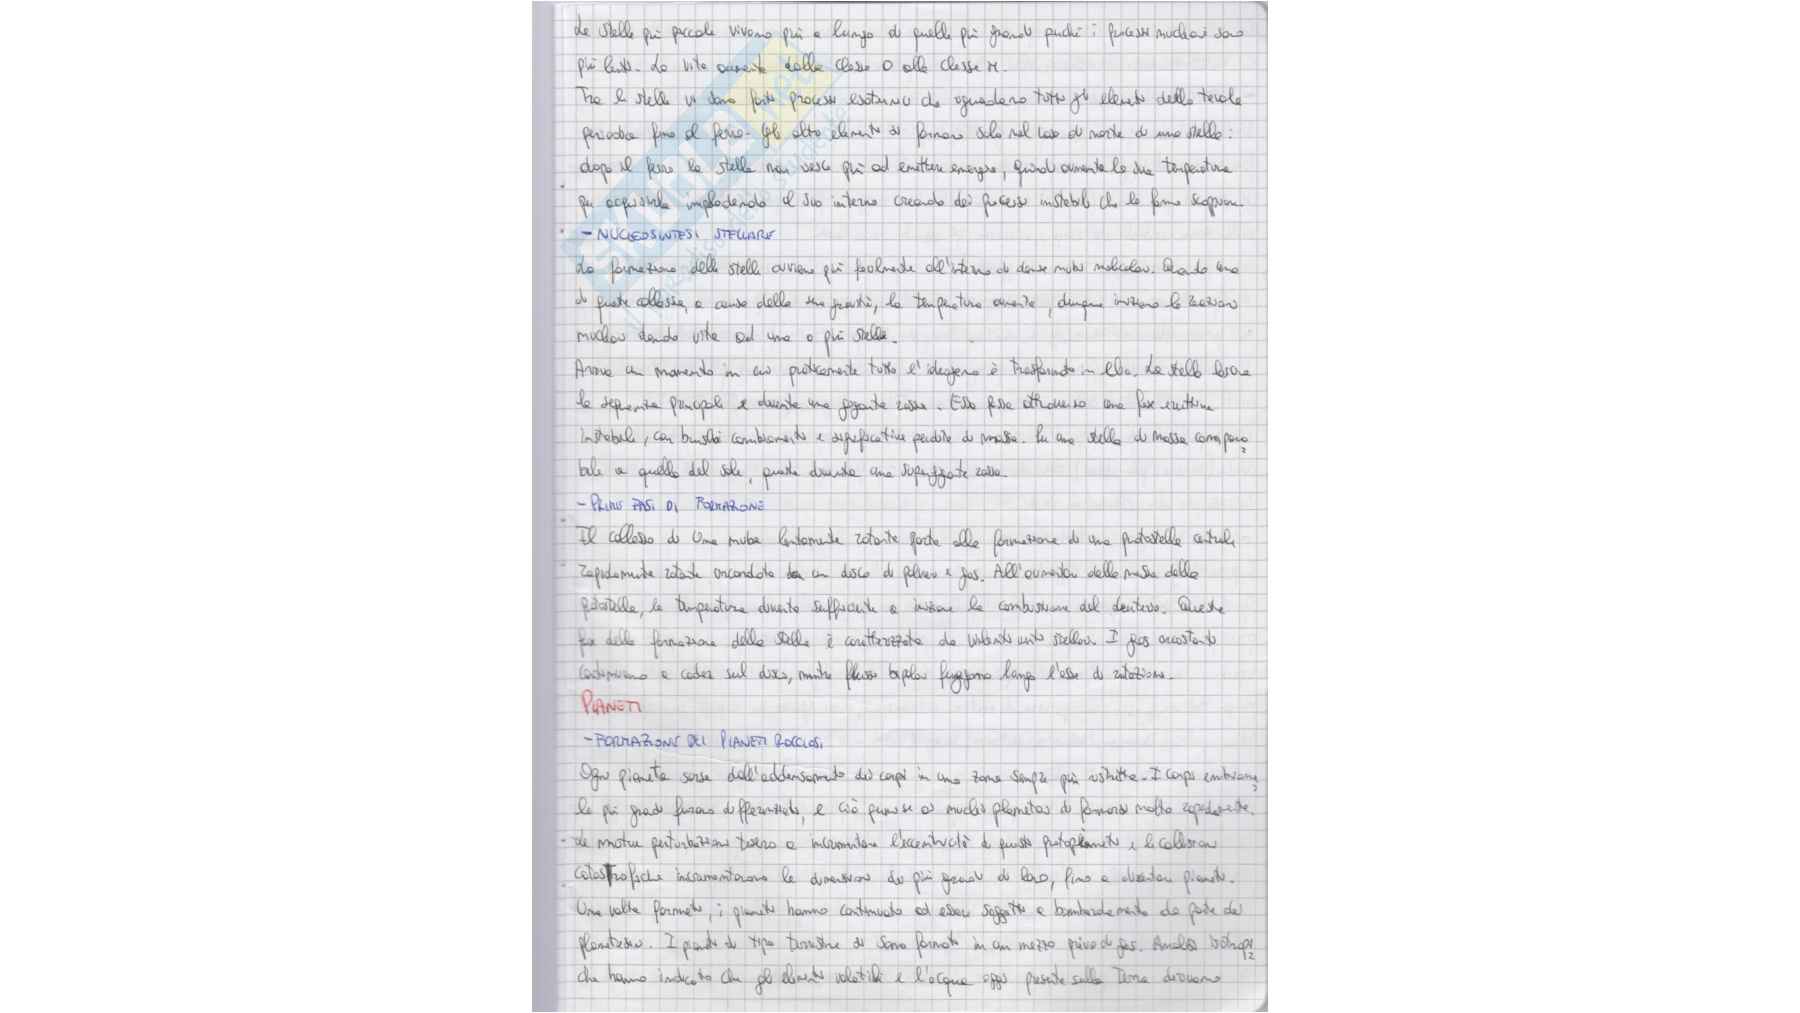 Le stelle più piccole vivono più a lungo di quelle più grandi perché i processi nucleari sono
più lenti. La vita aumenta dalla classe O alla classe M.
Tra le stelle vi sono forti processi esotermici che riguardano tutti gli elementi della tavola
periodica fino al ferro. Gli altri elementi si formano solo nel caso di morte di una stella:
dopo il ferro la stella non riesce più ad emettere energia, quindi aumenta la sua temperatura
per acquisirla implodendo al suo interno creando dei processi instabili che la fanno scoppiare.
- NUCLEOSINTESI STELLARE
La formazione delle stelle avviene più facilmente all'interno di dense nubi molecolari. Quando una
di queste collassa, a causa della sua gravità, la temperatura aumenta, dunque iniziano le reazioni
nucleari dando vita ad una o più stelle.
Arriva un momento in cui praticamente tutto l'idrogeno è trasformato in elio. La stella lascia
la sequenza principale e diventa una gigante rossa. Essa passa attraverso una fase eruttiva
instabile, con bruschi cambiamenti e significative perdite di massa. Per una stella di massa compara
bile a quella del sole, questa diventa una supergigante rossa.
- PRIME FASI DI FORMAZIONE
Il collasso di una nube lentamente rotante porta alla formazione di una protostella centrale
rapidamente rotante circondata da un disco di polveri e gas. All'aumentare della massa della
protostella, la temperatura diventa sufficiente a iniziare la combustione del deuterio. Questa
fase della formazione della stella è caratterizzata da violenti venti stellari. I gas circostanti
continuano a cadere sul disco, mentre flussi bipolari fuggono lungo l'asse di rotazione.
PIANETI
- FORMAZIONE DEI PIANETI ROCCIOSI
Ogni pianeta sorse dall'addensamento dei corpi in una zona sempre più ristretta. I corpi embriona
le più grandi furono differenziati, e ciò permise ai nuclei planetari di formarsi molto rapidamente.
Le mutue perturbazioni a incrementare l'eccentricità di questi protopianeti e le collisioni
catastrofiche incrementarono le dimensioni dei più grandi di loro, fino a diventare pianeti.
Una volta formati, i pianeti hanno continuato ad essere soggetti a bombardamento da parte dei
planetesimi. I pianeti di tipo terrestre si sono formati in un mezzo privo di gas. Analisi isotopi
che hanno indicato che gli elementi volatili e l'acqua oggi presente sulla Terra derivano
SKUOLA.net